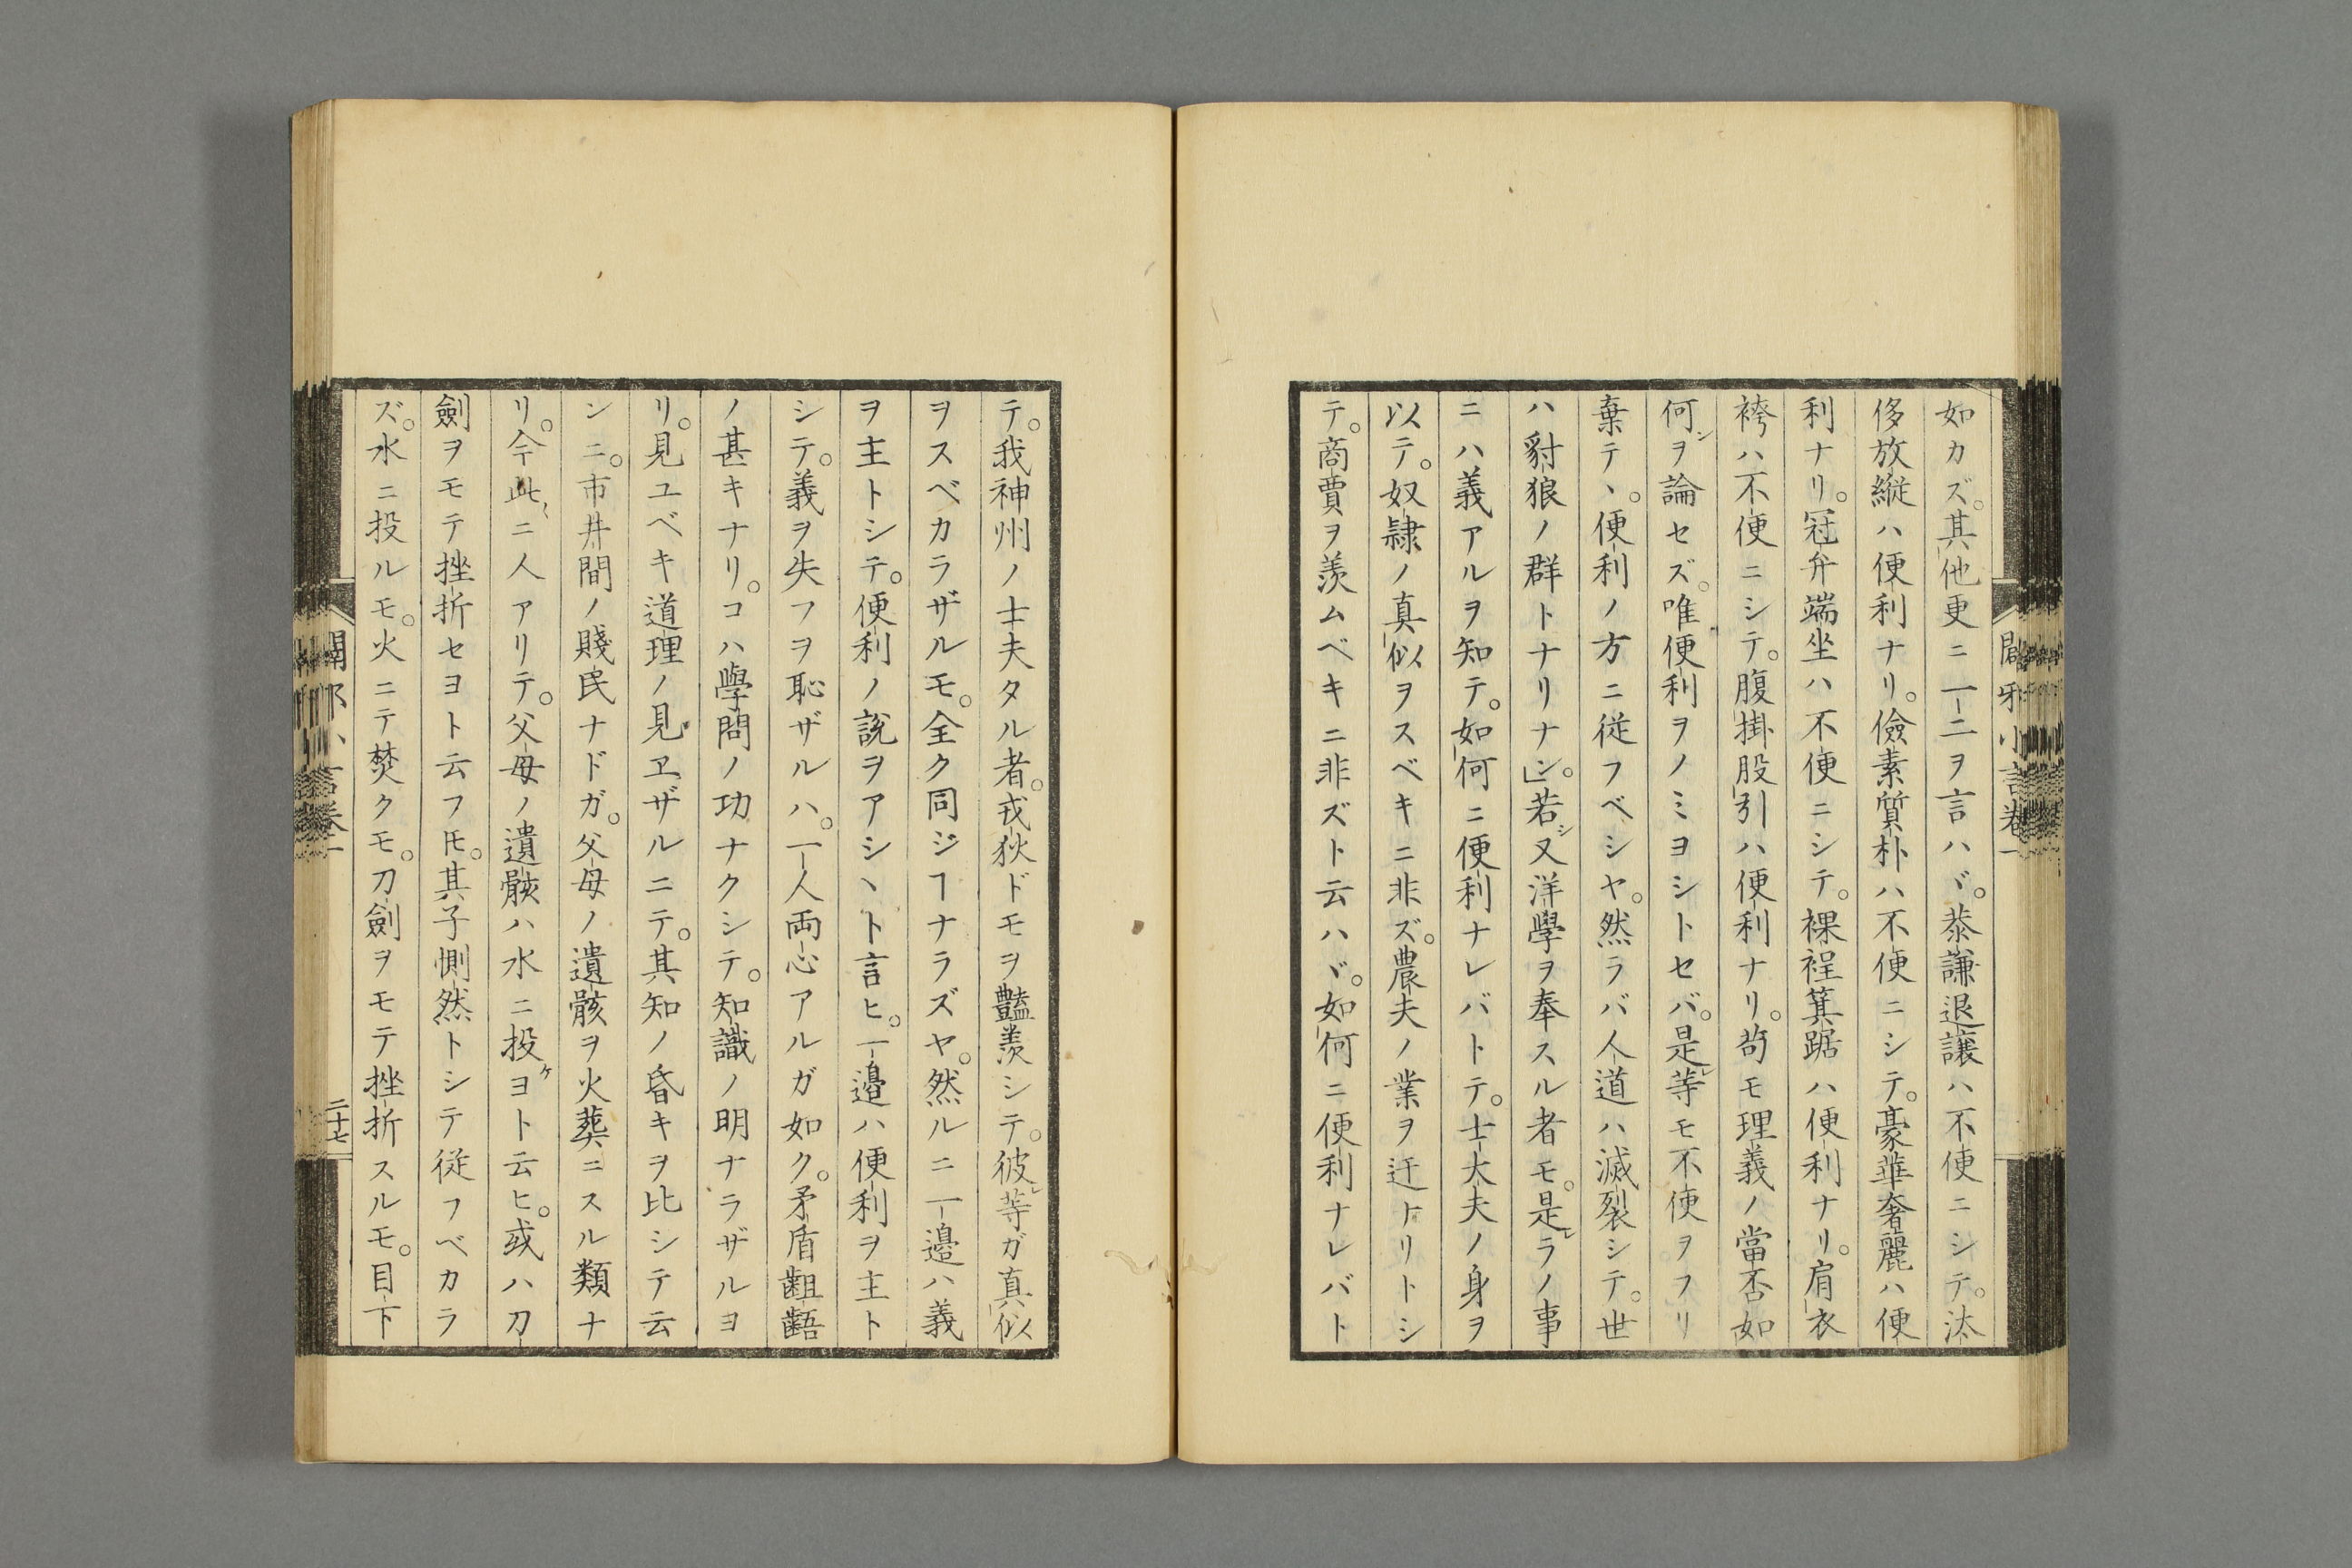 如カズ。其他更ニ一二ヲ言ハヾ。恭謙退譲ハ不便ニシテ。汰
侈放縦ハ便利ナリ。儉素質朴ハ不便ニシテ。豪華奢麗ハ便
利ナリ。冠弁端坐ハ不便ニシテ。裸裎箕踞ハ便利ナリ。肩衣
袴ハ不便ニシテ。腹掛股引ハ便利ナリ。苟モ理義ノ當否如
何ンヲ論セズ。唯便利ヲノミヨシトセバ。是レ等モ不便ヲフリ
棄テヽ。便利ノ方ニ従フベシヤ。然ラバ人道ハ滅裂シテ。世
ハ豺狼ノ群トナリナン」。若シ又洋學ヲ奉スル者モ。是レラノ事
ニハ義アルヲ知テ。如何ニ便利ナレバトテ。士大夫ノ身ヲ
以テ。奴隷ノ真似ヲスベキニ非ズ。農夫ノ業ヲ迂トリトシ
テ。商賈ヲ羨ムベキニ非ズト云ハヾ。如何ニ便利ナレバト
テ。我神州ノ士夫タル者。戎狄ドモヲ豔羨シテ。彼レ等ガ真似
ヲスベカラザルモ。全ク同ジヿナラズヤ。然ルニ一邉ハ義
ヲ主トシテ。便利ノ説ヲアシヽト言ヒ。一邉ハ便利ヲ主ト
シテ。義ヲ失フヲ恥ザルハ。一人両心アルガ如ク。矛盾齟齬
ノ甚キナリ。コハ學問ノ功ナクシテ。知識ノ明ナラザルヨ
リ。見ユベキ道理ノ見ヱザルニテ。其知ノ昏キヲ比シテ云
ンニ。市井間ノ賤民ナドガ。父母ノ遺骸ヲ火葬ニスル類ナ
リ。今此ニ人アリテ。父母ノ遺骸ハ水ニ投ケヨト云ヒ。或ハ刀
劍ヲモテ挫折セヨト云フ𪜈。其子惻然トシテ従フベカラ
ズ。水ニ投ルモ。火ニテ焚クモ。刀劍ヲモテ挫折スルモ。目下
闢邪小言卷一
二十七